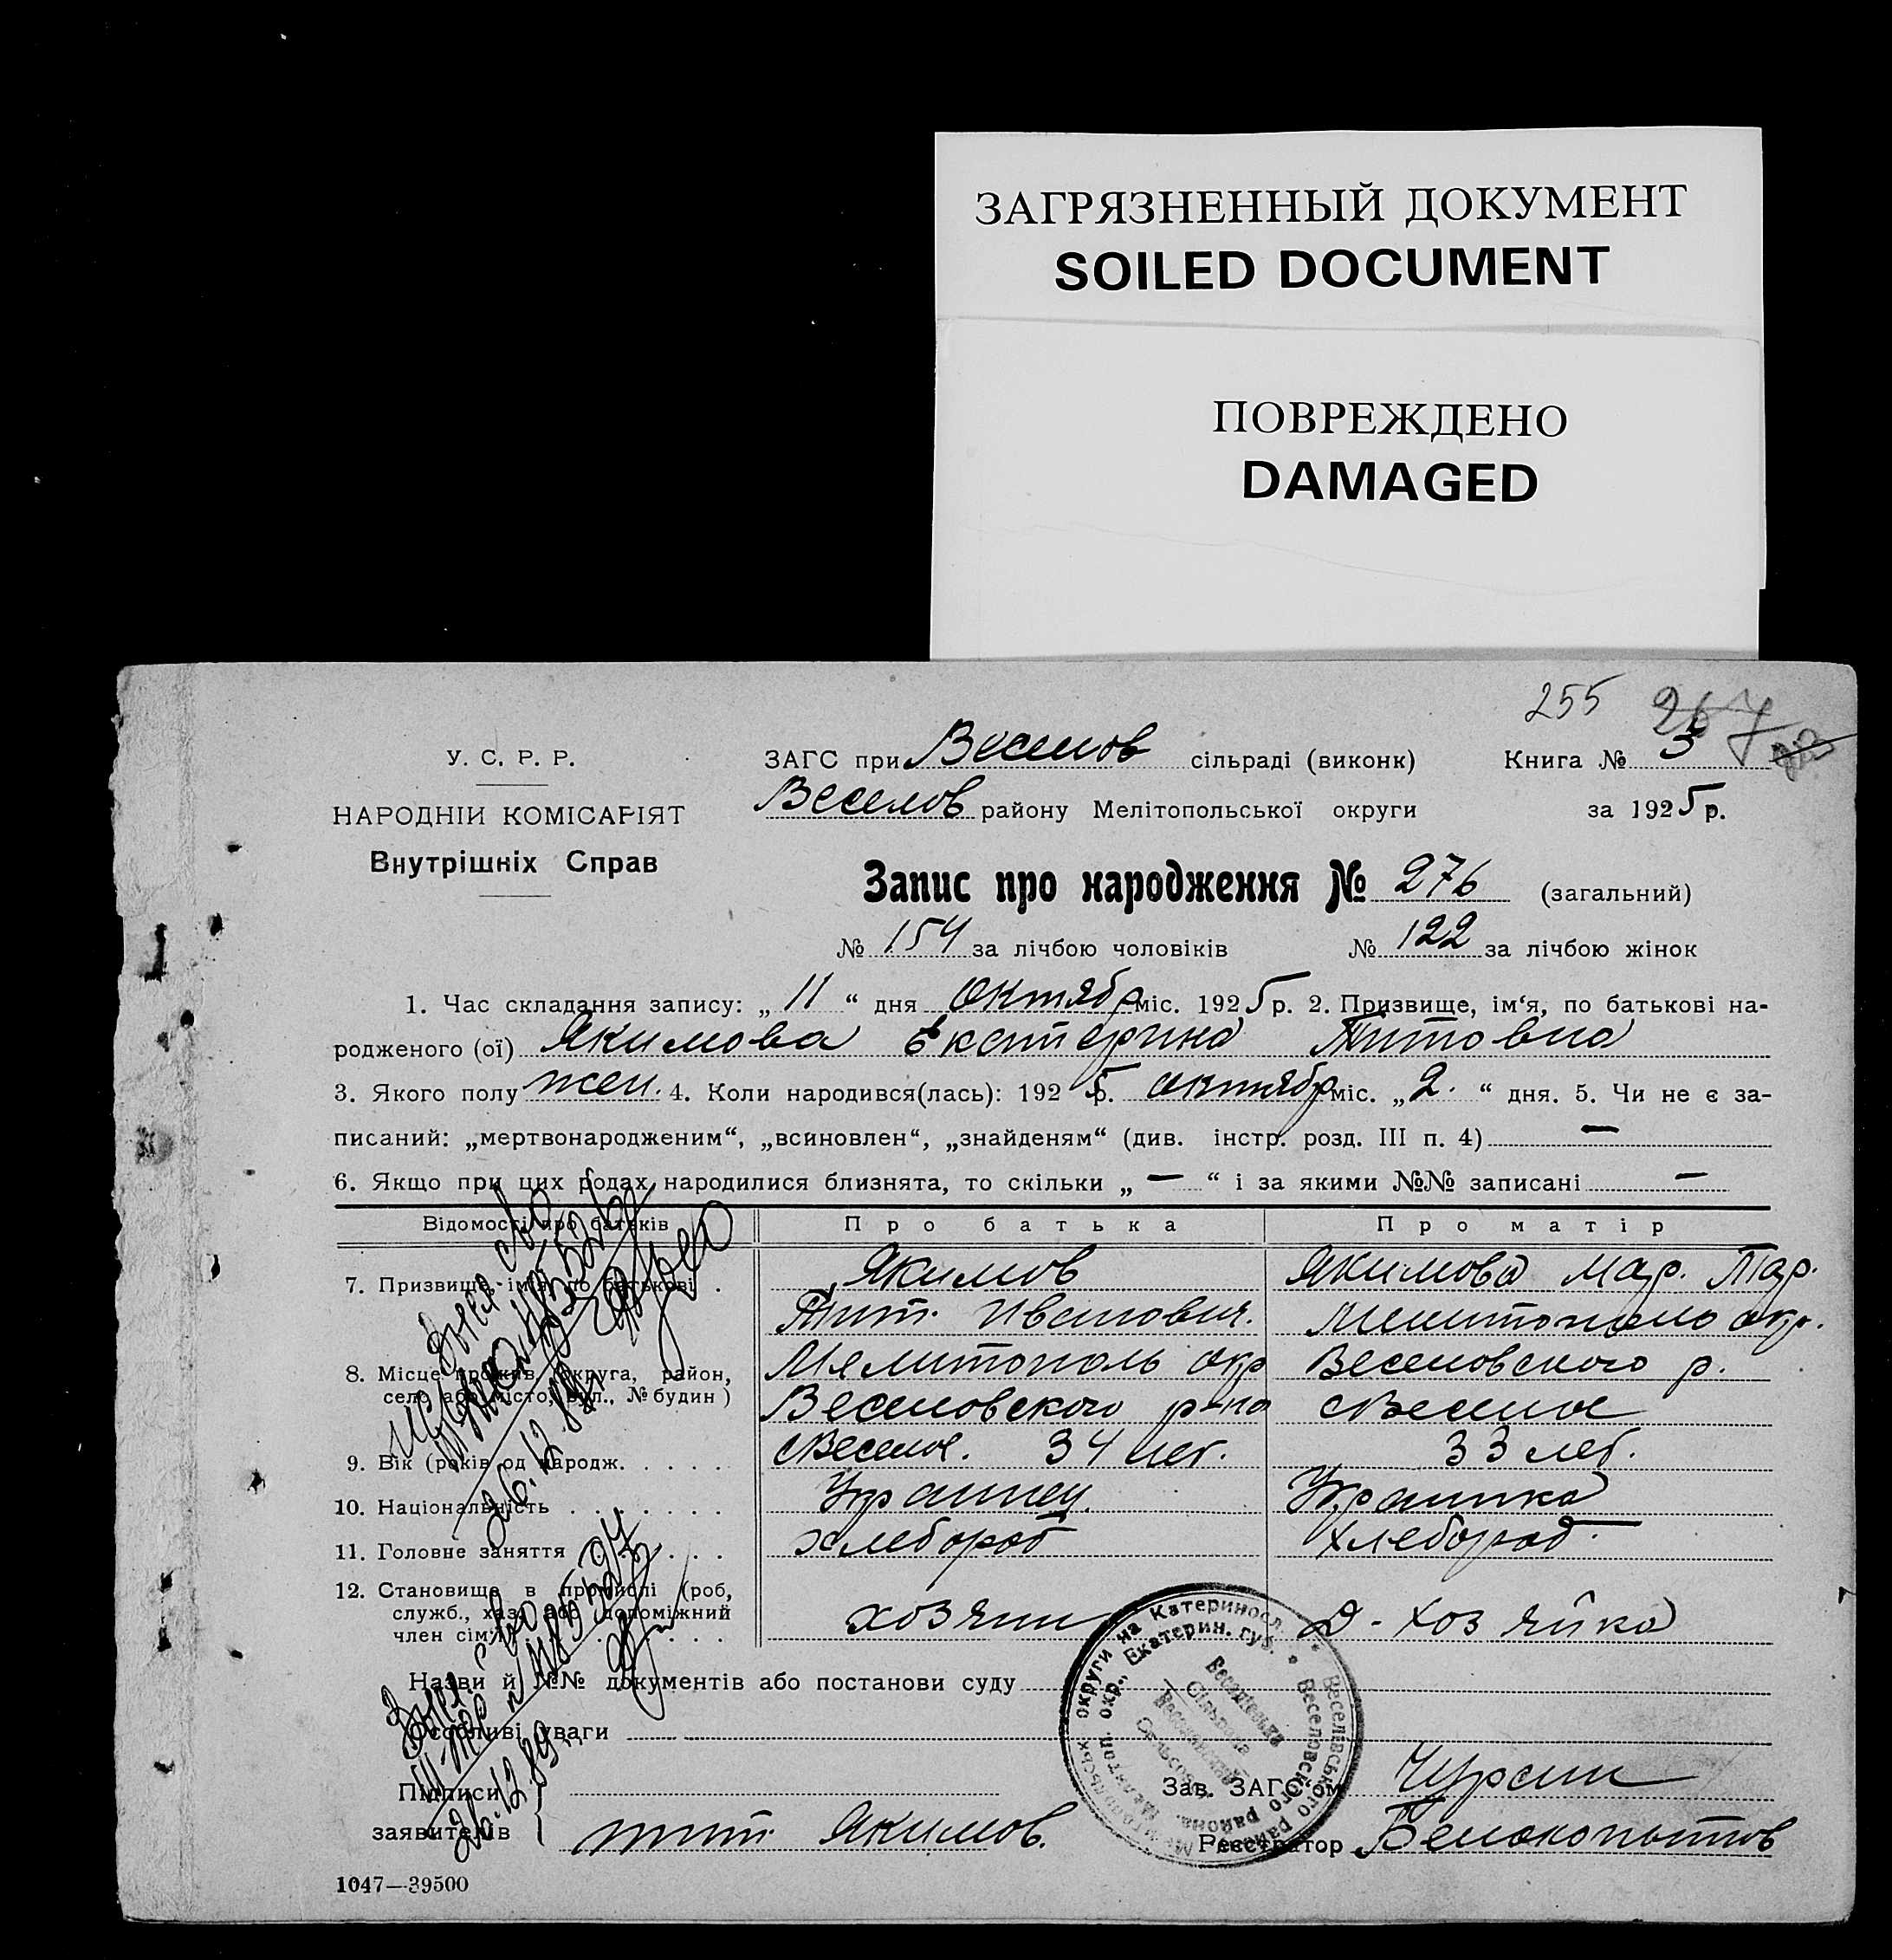 ЗАГРЯЗНЕННЫЙ ДОКУМЕНТ
SOILED DOCUMENT
ПОВРЕЖДЕНО
DAMAGED
255 267
У. С. Р. Р.
НАРОДНІИ КОМІСАРІЯТ
Внутрішніх Справ
ЗАГС при Веселов сільраді (виконк) Книга № 3
Веселов району Мелітопольської округи за 1925 р.
Запис про народження № 276 (загальний)
№ 154 за лічбою чоловіків № 122 за лічбою жінок
1. Час складання запису: „ 11 “ дня октябр міс. 1925 р. 2. Призвище, ім‘я, по батькові на-
родженого (ої) Якимова Екатерина Титовна
3. Якого полу жен. 4. Коли народився(лась): 1925 р. октябр міс. „ 2. “ дня. 5. Чи не є за-
писаний: „мертвонародженим“, „всиновлен“, „знайденям“ (див. інстр. розд. III п. 4) —
6. Якщо при цих родах народилися близнята, то скільки „ — “ і за якими №№ записані —
Відомості про батьків Про батька Про матір
7. Призвище, ім‘я, по батькові . Якимов Якимова Мар.
Тит Иванович. Мелитополь окр.
8. Місце прожив. (округа, район, Мелитополь окр Веселовского р.
село або місто, вул., № будин) Веселовского р-на с Веселое
9. Вік (років од народж. . . . . . с Веселое. 34 лет. 33 лет.
10. Національність . . . . . . . Украинец Украинка
11. Головне заняття . . . . . . хлебороб хлебороб
12. Становище в промислі (роб,
служб., хаз. або допоміжний хозяин д-хозяйка
член сім‘ї . . . . . .
Назви й №№ документів або постанови суду
Особливі уваги
Підписи Зав. ЗАГС‘ом Чурсин
заявителів Тит Якимов. Реєстратор Белокопытов
26.12.89
1047—39500